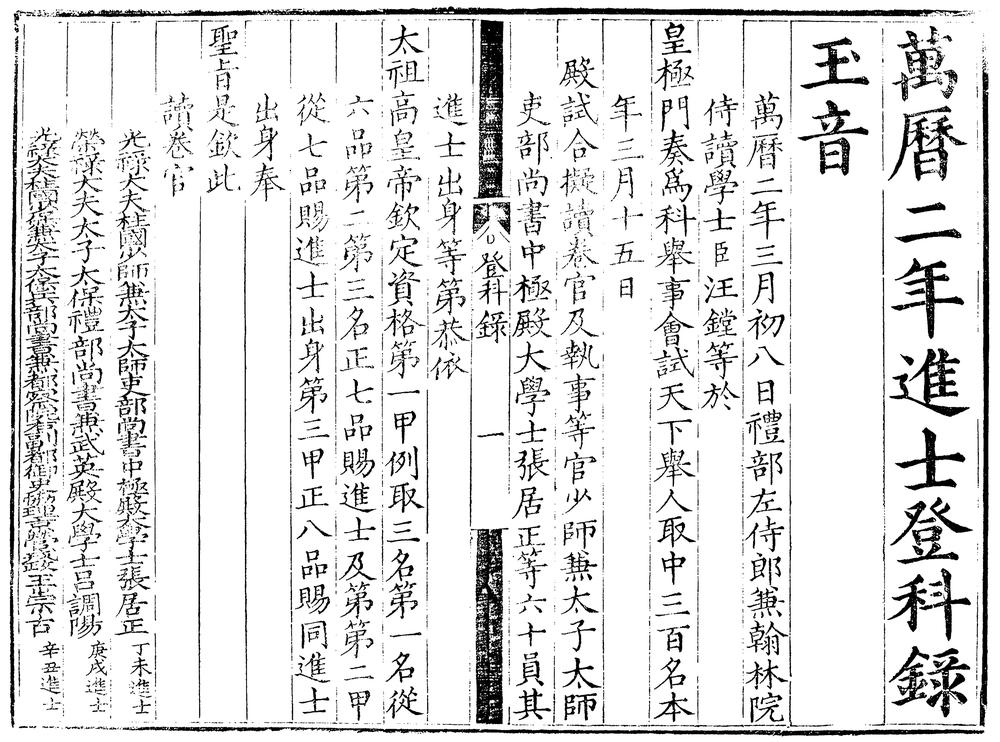 萬曆二年進士登科錄
玉音
萬曆二年三月初八日禮部左侍郎兼翰林院
侍讀學士臣汪鏜等於
皇極門奏爲科舉事會試天下舉人取中三百名本
年三月十五日
殿試合擬讀卷官及執事等官少師兼太子太師
吏部尚書中極殿大學士張居正等六十員其
登科錄 一
進士出身等第恭依
太祖高皇帝欽定資格第一甲例取三名第一名從
六品第二第三名正七品賜進士及第第二甲
從七品賜進士出身第三甲正八品賜同進士
出身奉
聖旨是欽此
讀卷官
光祿大夫柱國少師兼太子太師吏部尚書中極殿大學士張居正 丁未進士
榮祿大夫太子太保禮部尚書兼武英殿大學士呂調陽 庚戌進士
光祿大夫柱國少保兼太子太保兵部尚書兼都察院右副都御史 王崇古 辛丑進士